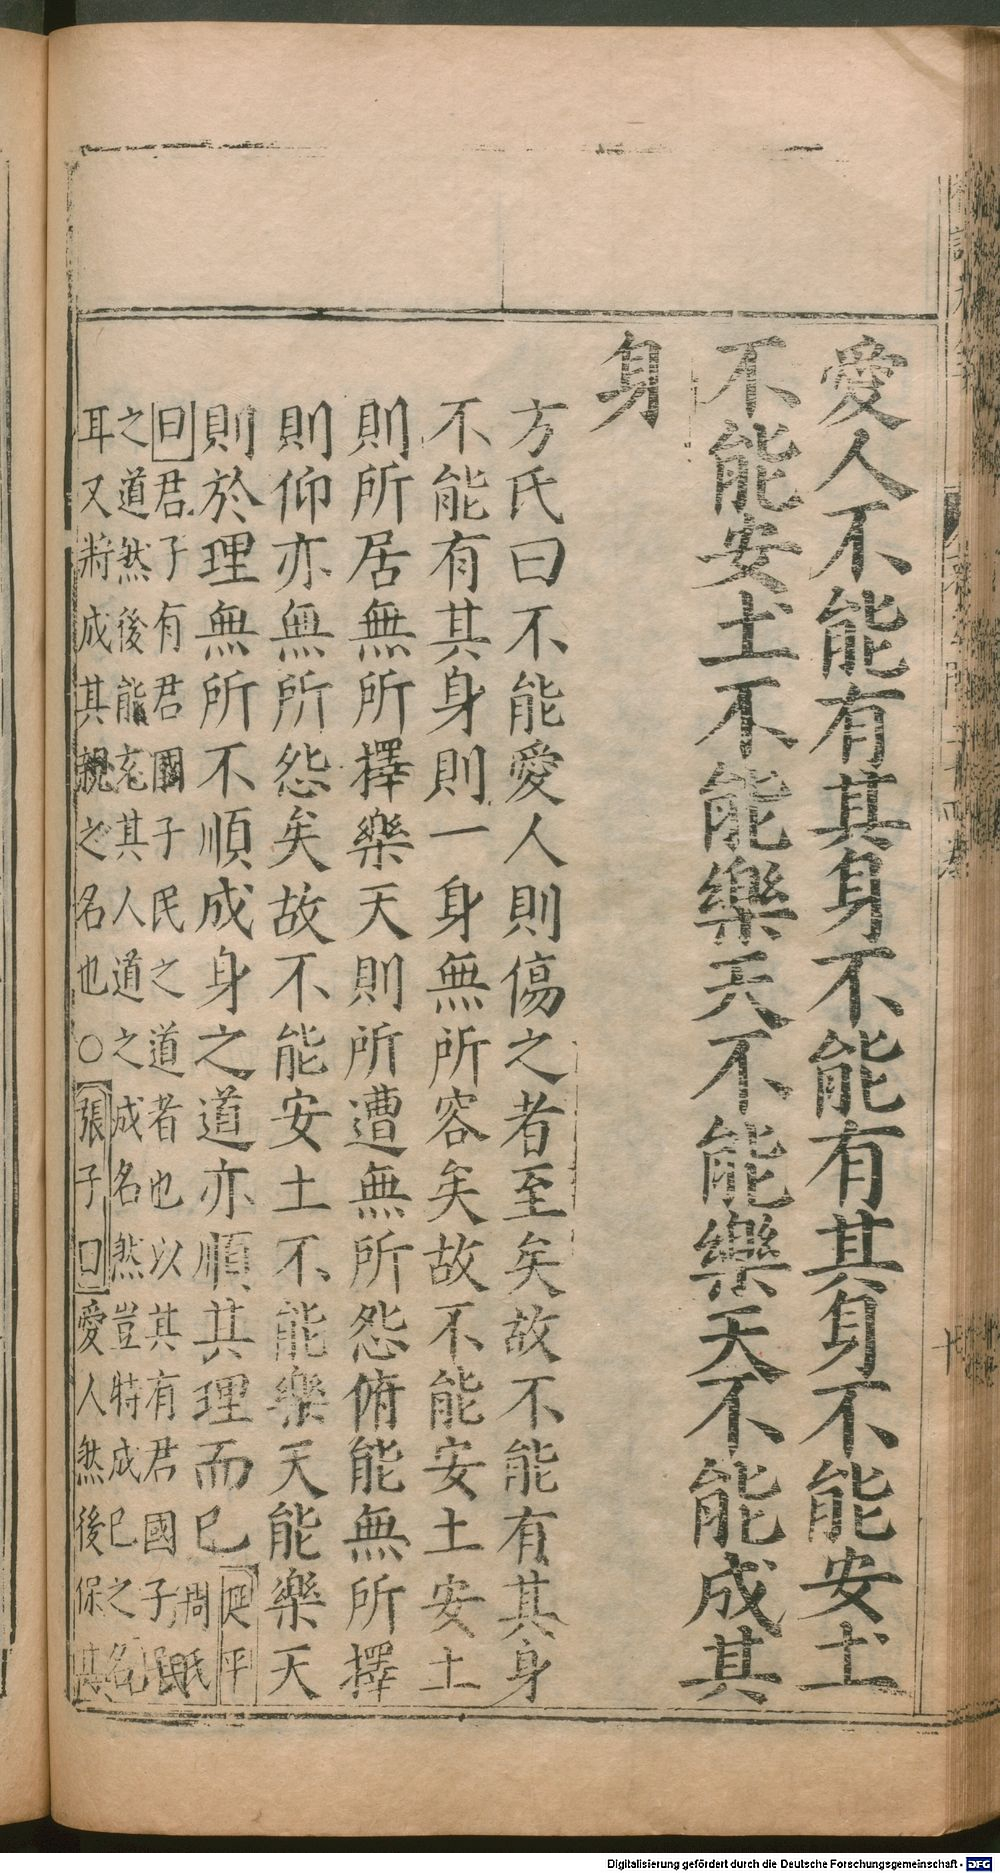 愛人不能有其身不能有其身不能安土
不能安土不能樂天不能樂天不能成其
身
方氏曰不能愛人則傷之者至矣故不能有其身
不能有其身則一身無所容矣故不能安土安土
則所居無所擇樂天則所遭無所怨俯能無所擇
則仰亦無所怨矣故不能安土不能樂天能樂天
則於理無所不順成身之道亦順其理而已延平
周氏
曰君子有君國子民之道者也以其有君國子民
之道然後能充其人道之成名然豈特成已之名
耳又將成其親之名也○張子曰愛人然後保其
Digitalisierung gefördert durch die Deutsche Forschungsgemeinschaft - DFG